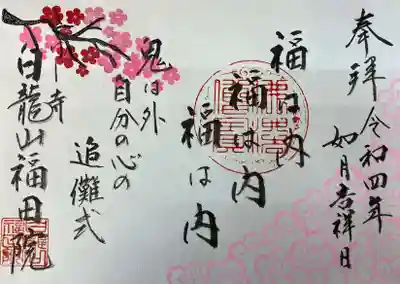 奉拝 令和四年
如月吉祥日
福は内
福は内
福は内
鬼は外
自分の心の
追儺式
寺
白龍山福田院